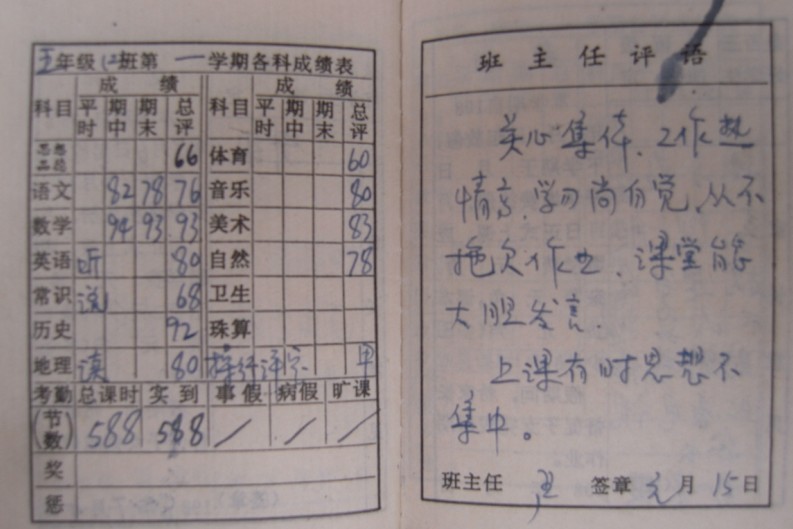 五年级(2)班第一学期各科成绩表
科目 成绩 科目 成绩
平时 期中 期末 总评 平时 期中 期末 总评
思想品德 66 体育 60
语文 82 78 76 音乐 80
数学 94 93 93 美术 83
英语 听 80 自然 78
常识 说 68 卫生
历史 92 珠算
地理 读 80 操行评定 甲
考勤 总课时 实到 事假 病假 旷课
(节数) 588 588 / / /
奖
惩
班主任评语
关心集体、工作热
情高、学习尚自觉、从不
拖欠作业、课堂能
大胆发言.
上课有时思想不
集中。
班主任 签章 元月15日